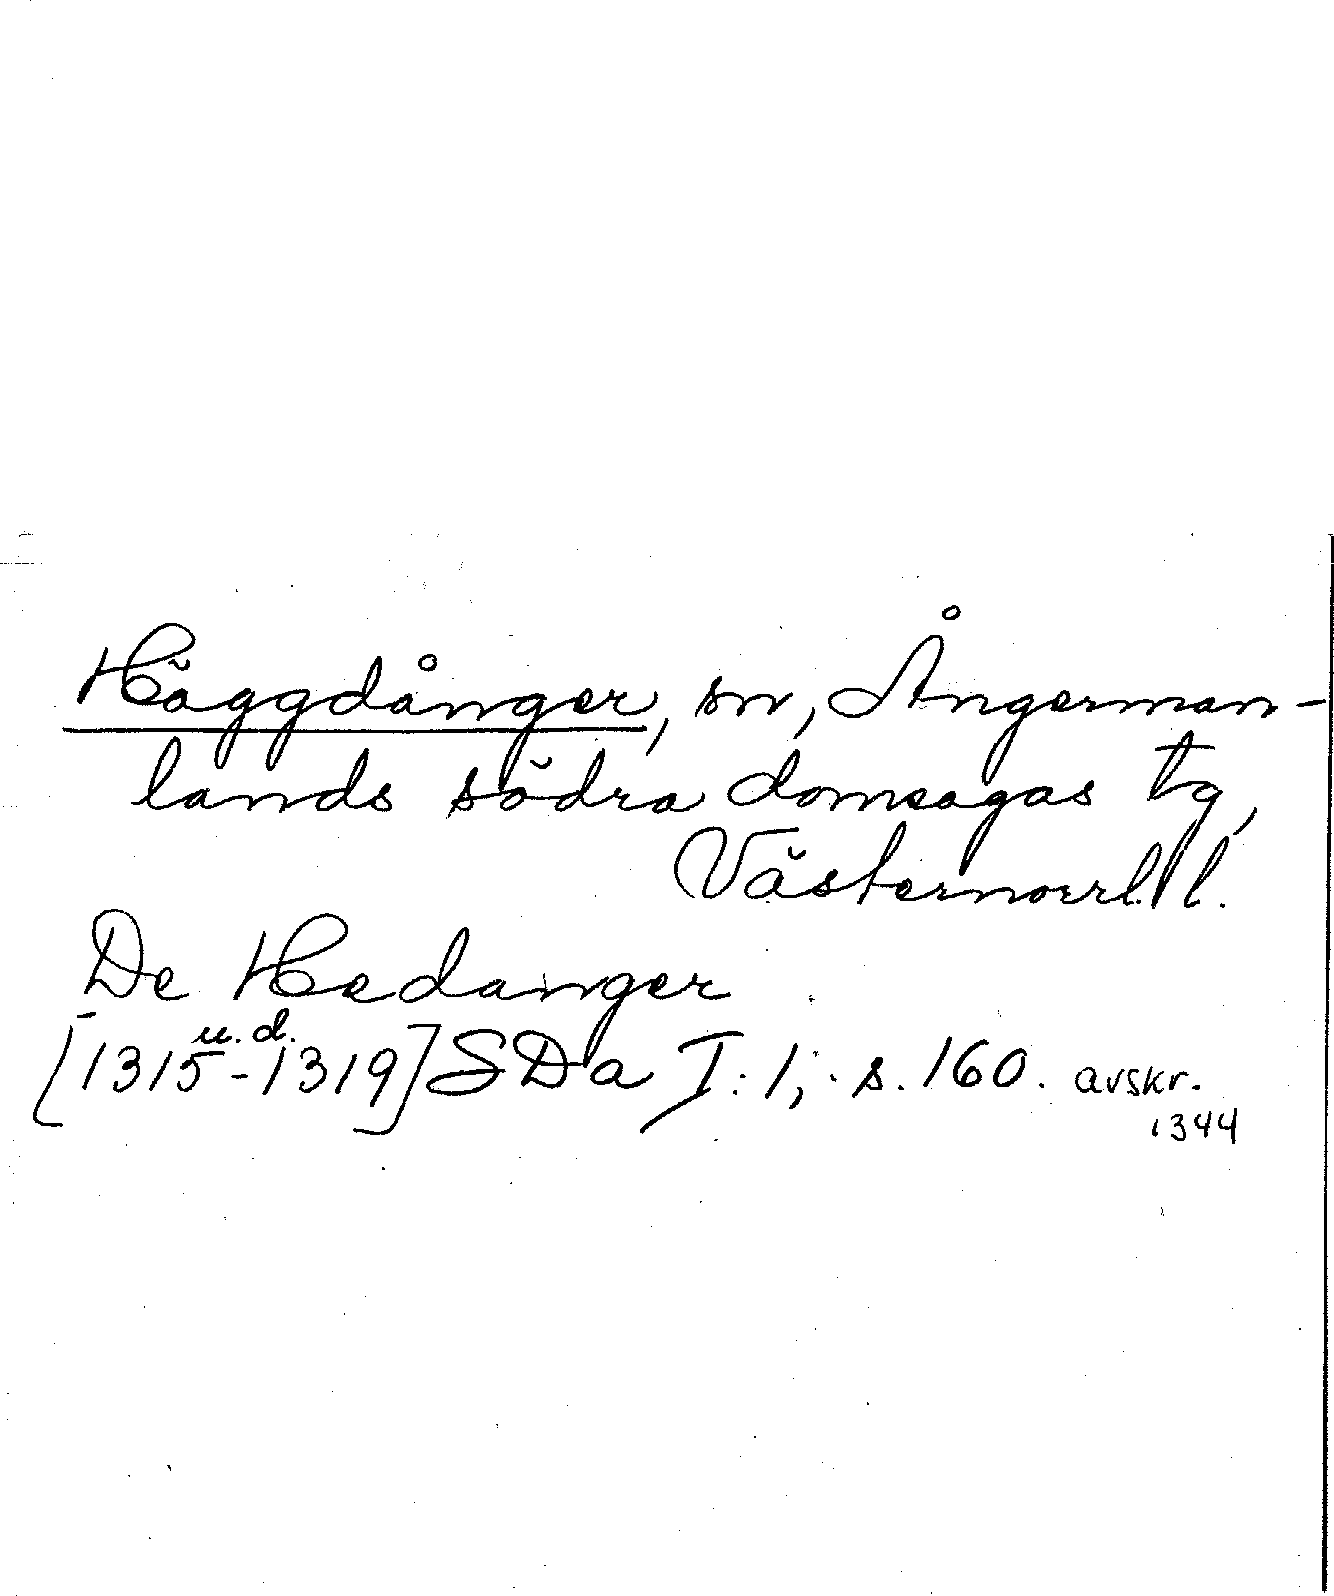 Häggdånger, sn, Ångerman-
lands södra domsagas tg,
Västernorrl. l.
De Hedanger
u. d.
[1315-1319] SDa I:1, s. 160. avskr.
1344